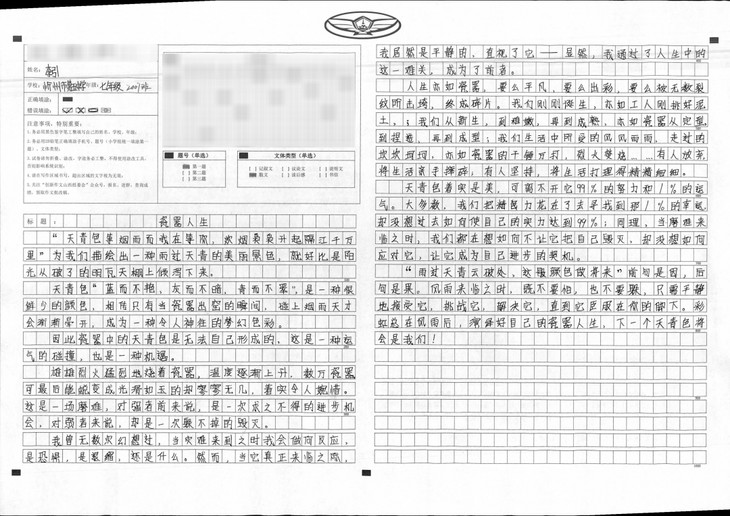 姓名：
学校： 年级：七年级
正确填涂：
错误填涂：
注意事项，特别重要：
题号（单选）
第一题
第二题
第三题
文体类型（单选）
记叙文
议论文
说明文
散文
读后感
书信
标题：
瓷器人生
“天青色等烟雨而我在等你，炊烟袅袅升起隔江千万
里”为我们描绘出一种雨过天青的美丽景色，就好比是阳
光从破了的明瓦天棚上倾泻下来。
天青色“蓝而不艳、灰而不暗、青而不翠”，是一种很
难调的颜色，相传只有当瓷器出窑的瞬间，碰上烟雨天才
会渐渐晕开，成为一种令人神往的梦幻色彩。
因此瓷器中的天青色是无法自己形成的，这是一种运
气的碰撞，也是一种机遇。
雄雄烈火猛烈地烧着瓷器，温度逐渐上升，数万瓷器
可最后能蜕变成光滑如玉的却寥寥无几，着实令人惋惜。
这是一场磨难，对强者而来说，是一次求之不得的进步机
会，对弱者来说，却是一次躲不掉的毁灭。
我曾无数次幻想过，当灾难来到之时我会做何反应，
是恐惧，是退缩，还是什么。然而，当它真正来临之际，
我居然是平静的，直视了它——显然，我通过了人生中的
这一难关，成为了前者。
人生亦如瓷器，要么平凡，要么出彩，要么被无数裂
纹所击溃，终成碎片。我们刚刚诞生，亦如工人刚挑好泥
土；我们从新生，到稚嫩，再到成熟，亦如瓷器从定型，
到捏塑，再到成型；我们生活中所受的风风雨雨，走过的
坎坎坷坷，亦如瓷器的千锤万打，微火焚烧……有人放弃
将生活亲手摔碎；有人坚持，将生活打理得精精细细。
天青色着实是美，可离不开它99%的努力和1%的运
气。大多数，我们把精力花在了去寻找那1%的幸运，
却没想过去如何使自己的实力达到99%；同理，当磨难来
临之时，我们都在想如何不让它把自己毁灭，却没想如何
应对它，让它成为自己进步的契机。
“雨过天青云破处，这般颜色做将来”前句是因，后
句是果，风雨来临之时，既不要怕，也不要躲，只需平静
地接受它，挑战它，解决它，直到它臣服在你的脚下。彩
虹总在风雨后，演绎好自己的瓷器人生，下一个天青色将
会是我们！